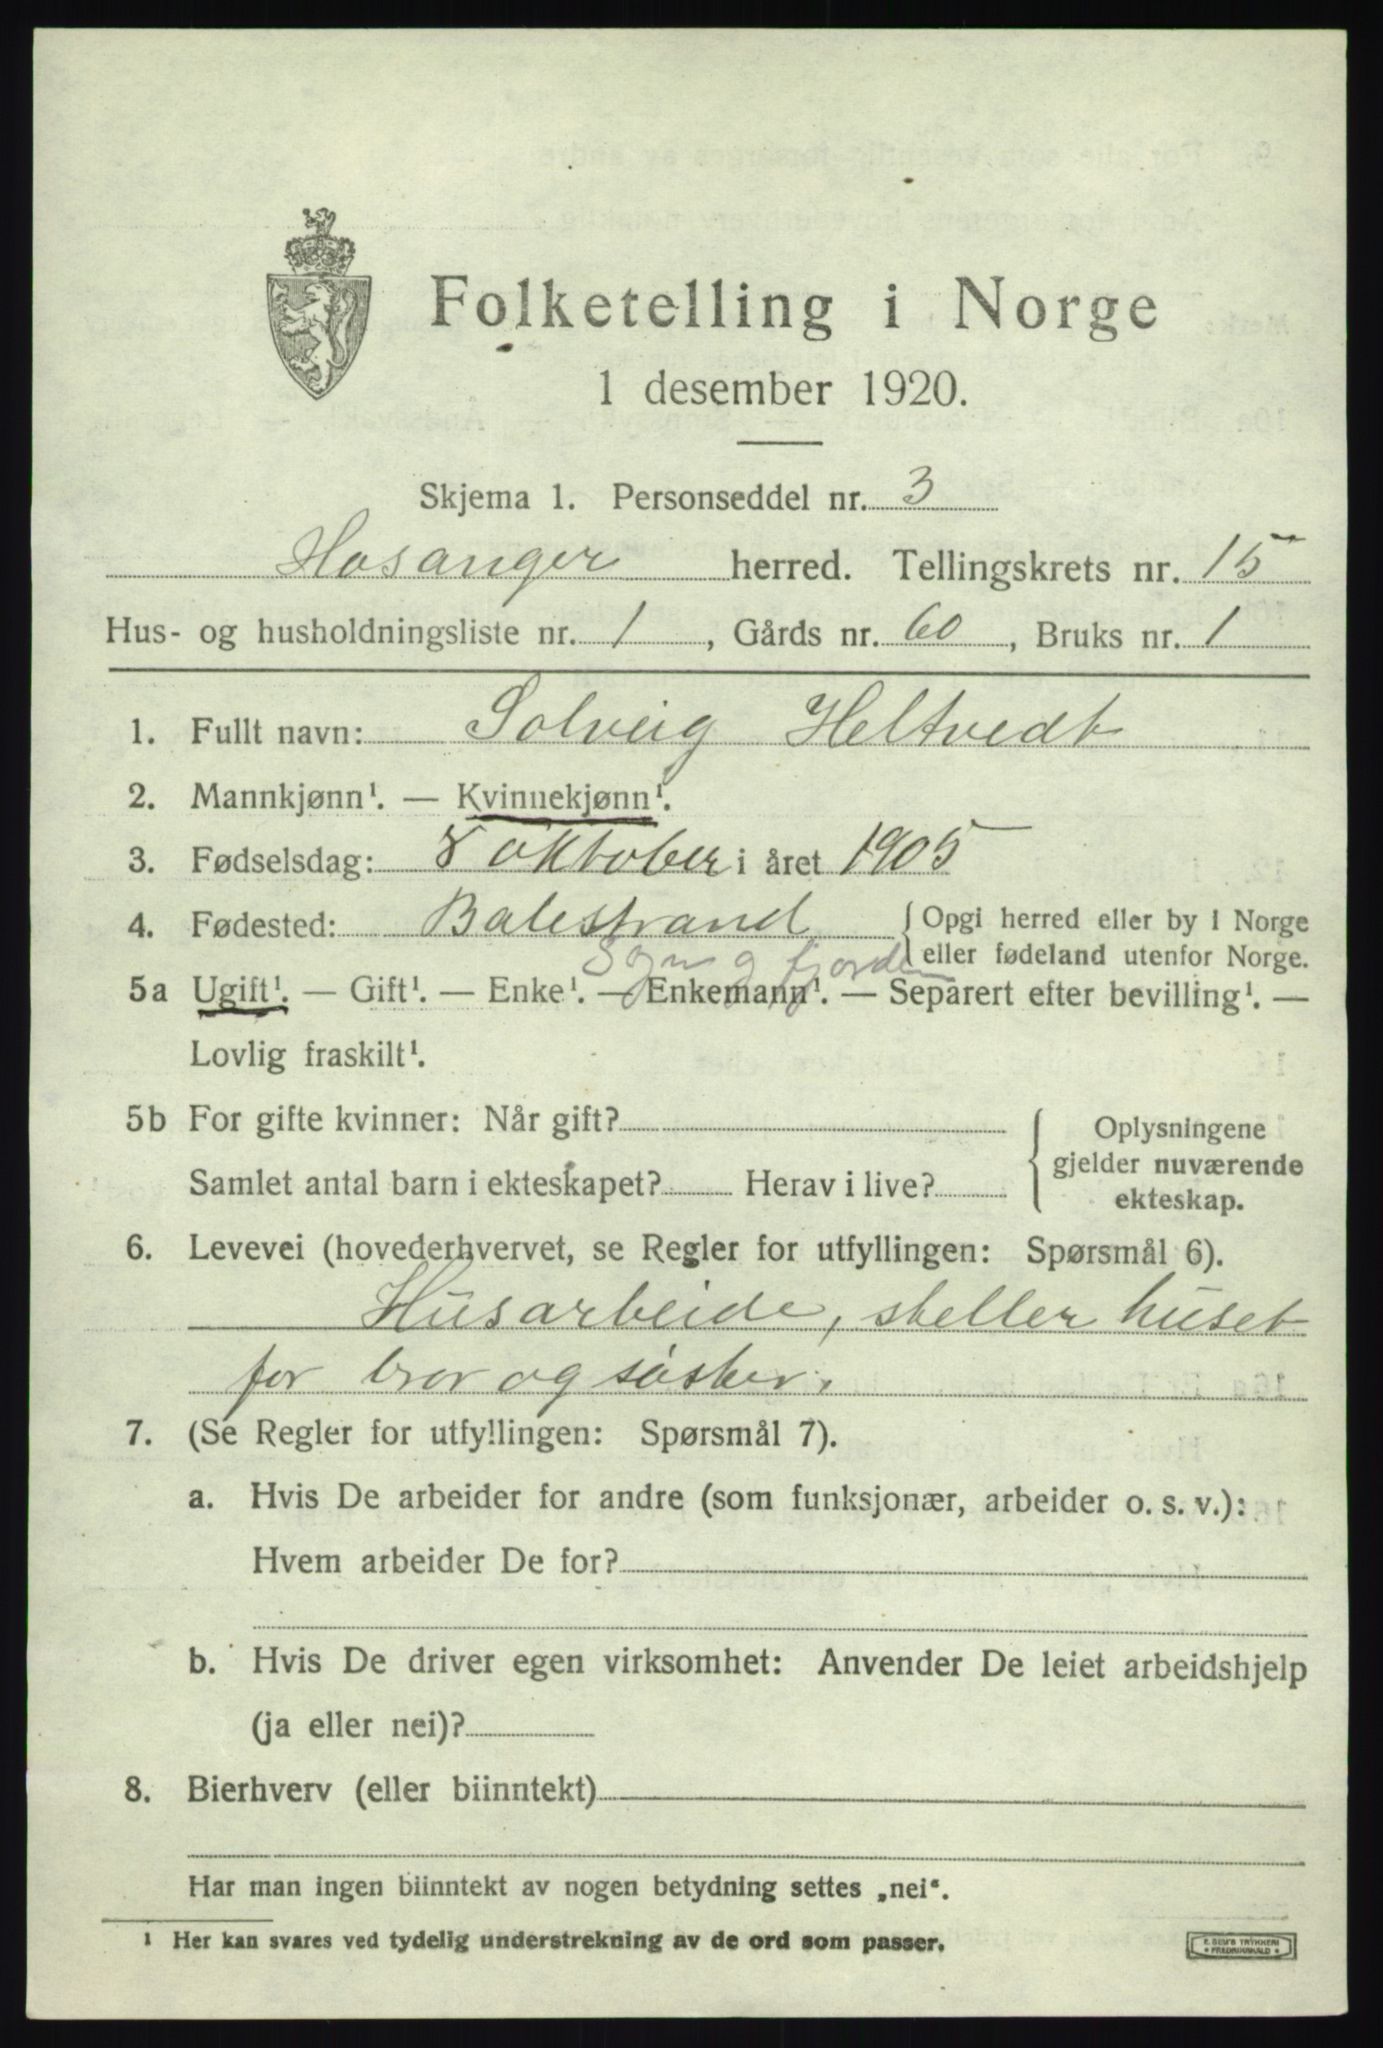 Folketelling i Norge
1 desember 1920.
Skjema 1. Personseddel nr. 3
Hosanger herred. Tellingskrets nr. 15
Hus- og husholdningsliste nr. 1, Gårds nr. 60, Bruks nr. 1
1. Fullt navn: Solveig Heltvedt
2. Mannkjønn¹. — Kvinnekjønn¹.
3. Fødselsdag: 8 oktober i året 1905
4. Fødested: Balestrand { Opgi herred eller by i Norge
eller fødeland utenfor Norge.
5a Ugift¹. — Gift¹. — Enke¹. — Enkemann¹. — Separert efter bevilling¹. —
Lovlig fraskilt¹.
5b For gifte kvinner: Når gift?
Samlet antal barn i ekteskapet? Herav i live?
{ Oplysningene
gjelder nuværende
ekteskap.
6. Levevei (hovederhvervet, se Regler for utfyllingen: Spørsmål 6).
Husarbeide, steller huset
for bror og søster.
7. (Se Regler for utfyllingen: Spørsmål 7).
a. Hvis De arbeider for andre (som funksjonær, arbeider o. s. v.):
Hvem arbeider De for?
b. Hvis De driver egen virksomhet: Anvender De leiet arbeidshjelp
(ja eller nei)?
8. Bierhverv (eller biinntekt)
Har man ingen biinntekt av nogen betydning settes „nei“.
¹ Her kan svares ved tydelig understrekning av de ord som passer.
E. SEM'S TRYKKERI
FREDRIKSHALD